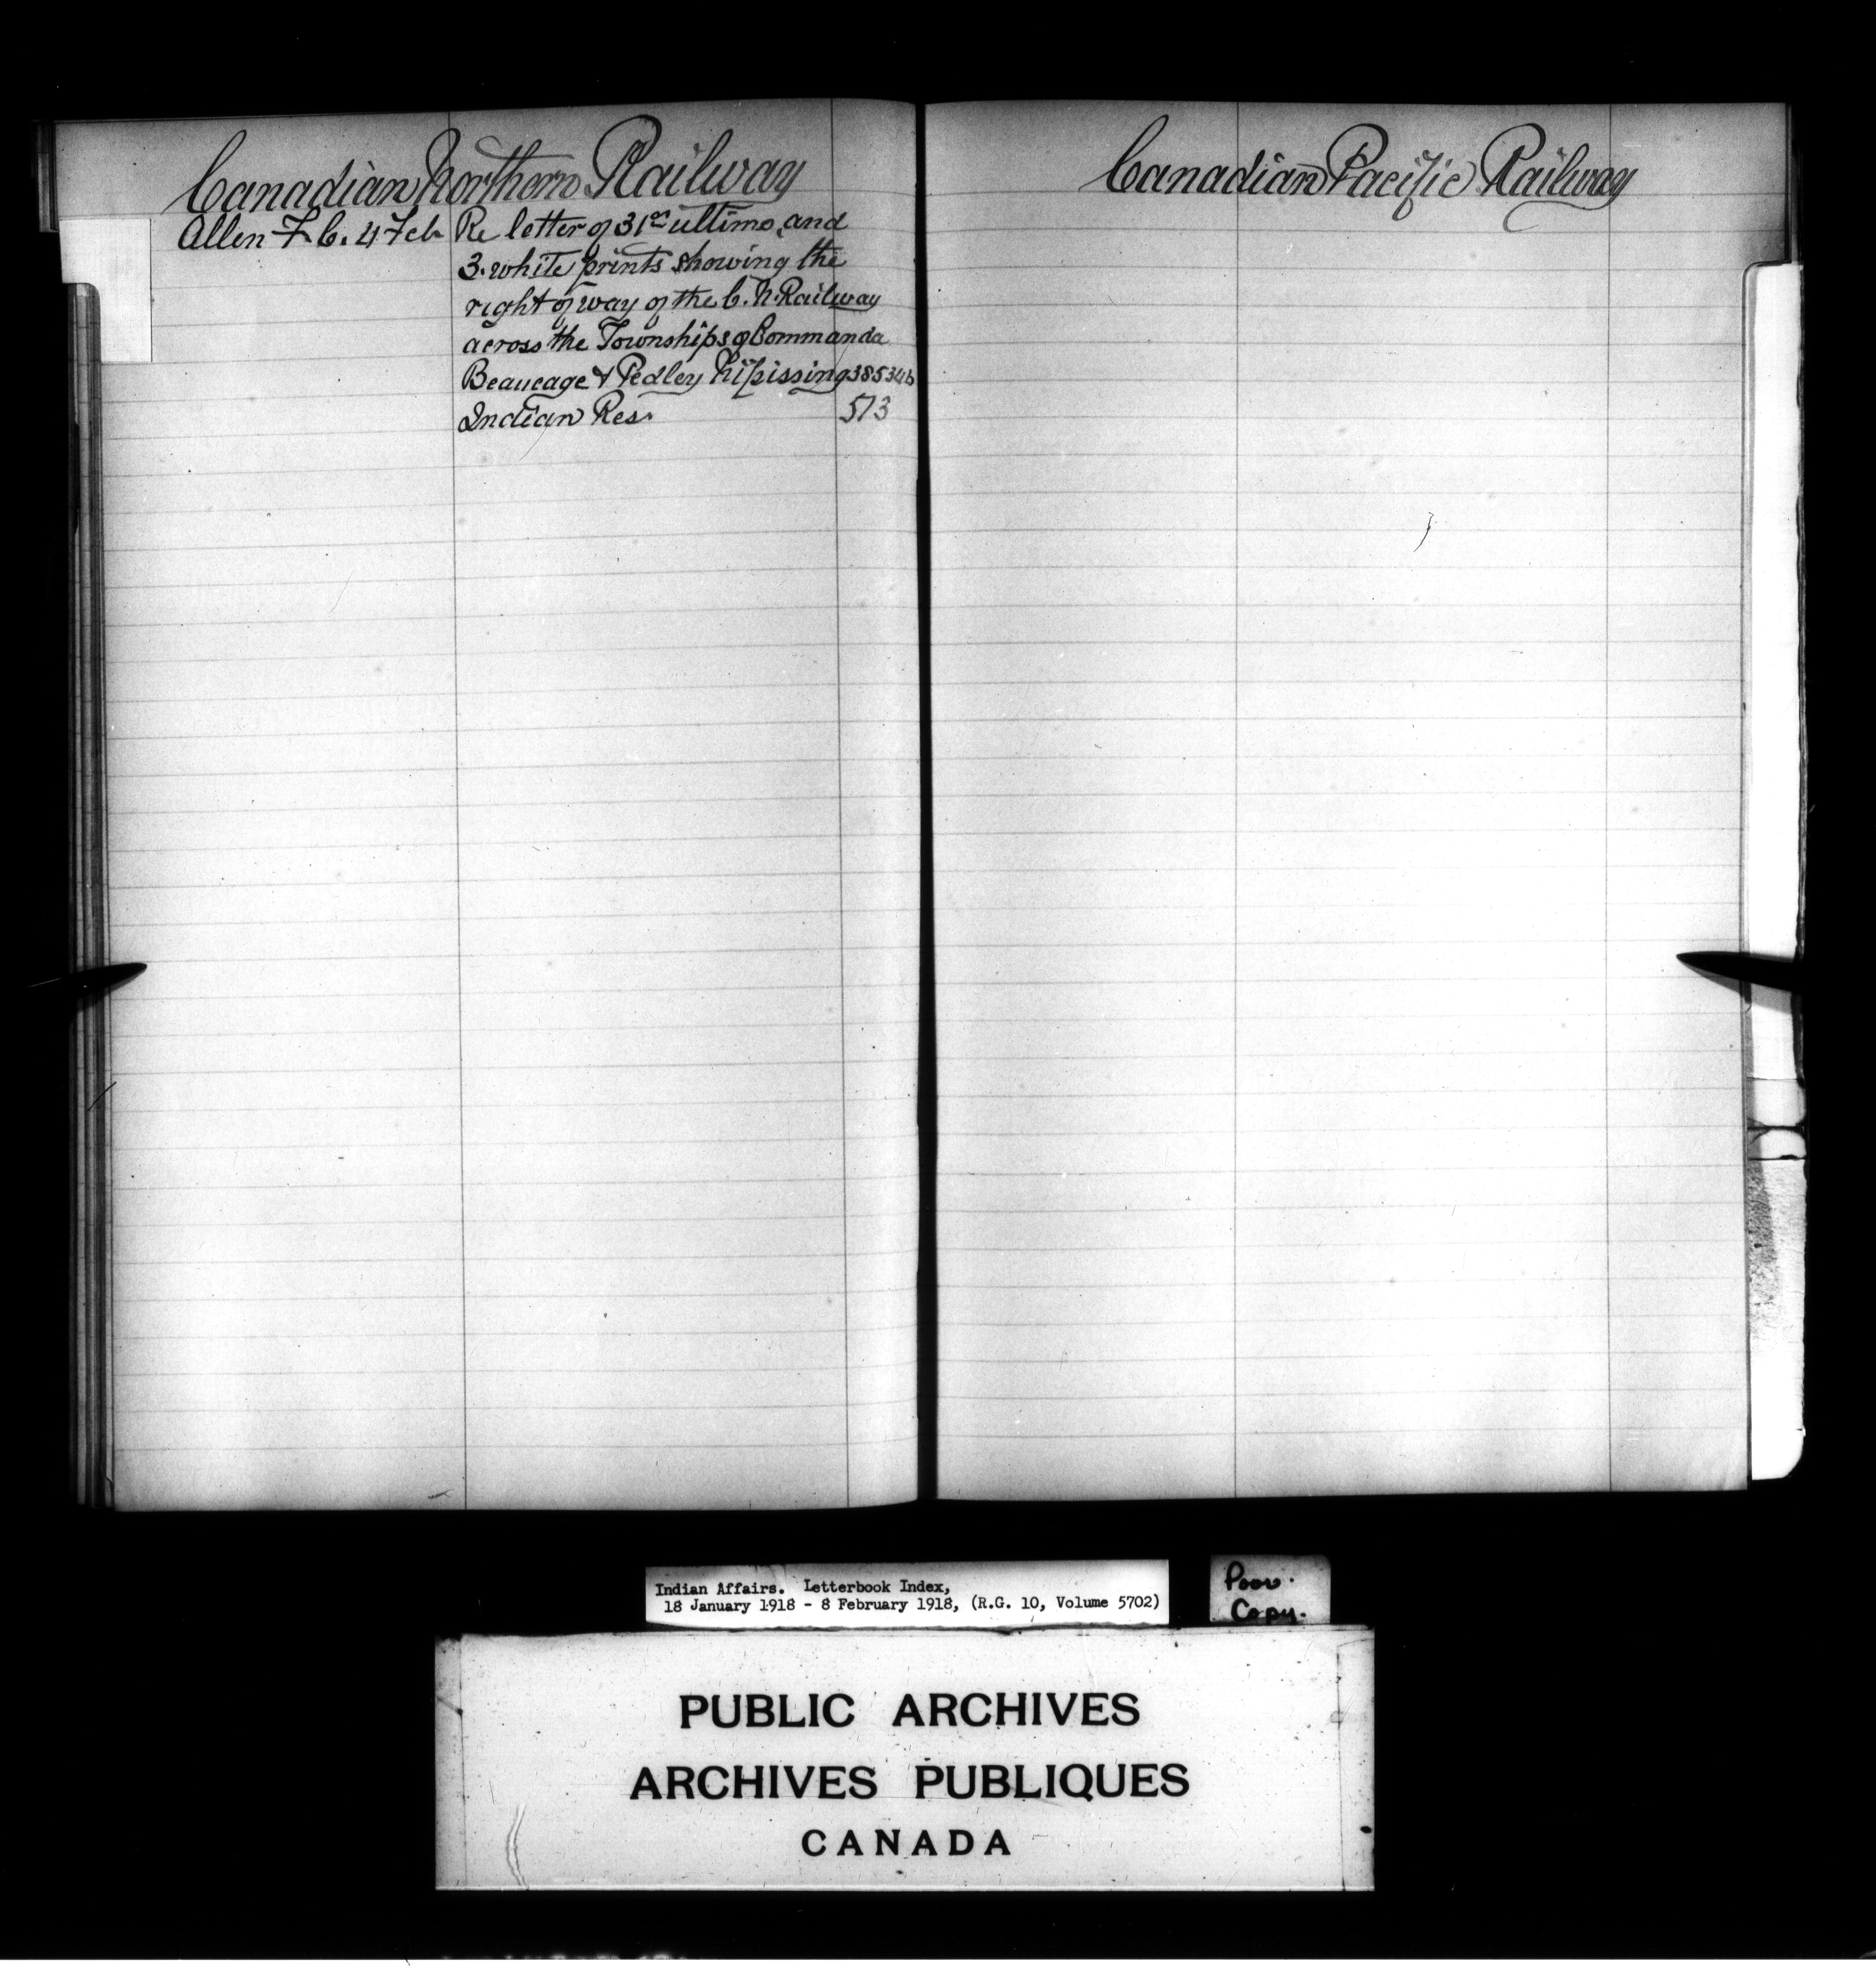 Canadian Northern Railway
Allen F. C. 4 Feb Re letter of 31st ultimo, and
3. white prints showing the
right of way of the C. N. Railway
across the Townships of Commanda
Beaucage & Pedley Nipissing 385346
Indian Res. 573
Canadian Pacific Railway
Indian Affairs. Letterbook Index,
18 January 1918 - 8 February 1918, (R.G. 10, Volume 5702)
Poor.
Copy.
PUBLIC ARCHIVES
ARCHIVES PUBLIQUES
CANADA